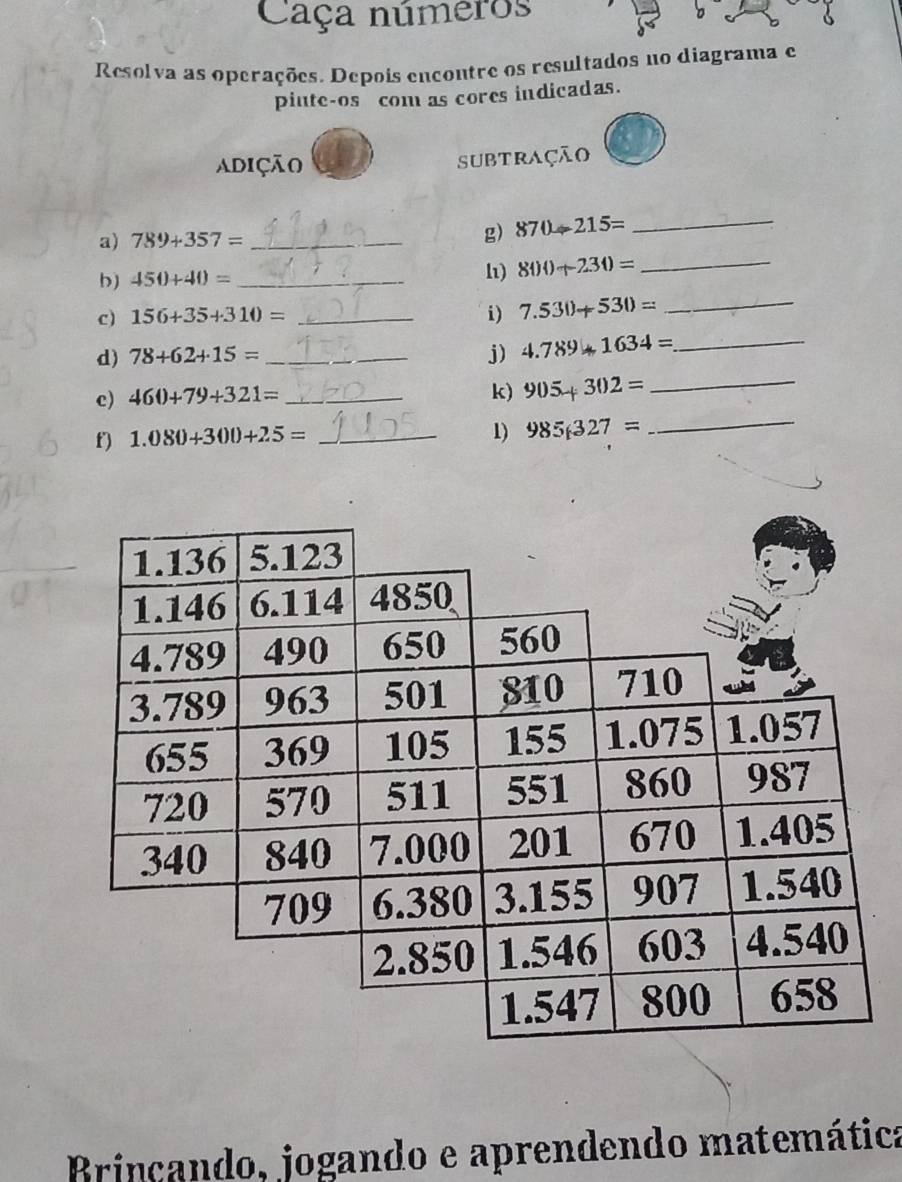 Caça números
Resolva as operações. Depois encontre os resultados no diagrama e
pinte-os com as cores indicadas.
ADIÇÃO SUBTRAÇÃO
a) 789+357=
b) 450+40=
c) 156+35+310=
d) 78+62+15=
e) 460+79+321=
f) 1.080+300+25=
g) 870-215=
h) 800-230=
i) 7.530-530=
j) 4.789-1634=
k) 905-302=
l) 985-327=
1.136 5.123
1.146 6.114 4850
4.789 490 650 560
3.789 963 501 810 710
655 369 105 155 1.075 1.057
720 570 511 551 860 987
340 840 7.000 201 670 1.405
709 6.380 3.155 907 1.540
2.850 1.546 603 4.540
1.547 800 658
Brincando, jogando e aprendendo matemática